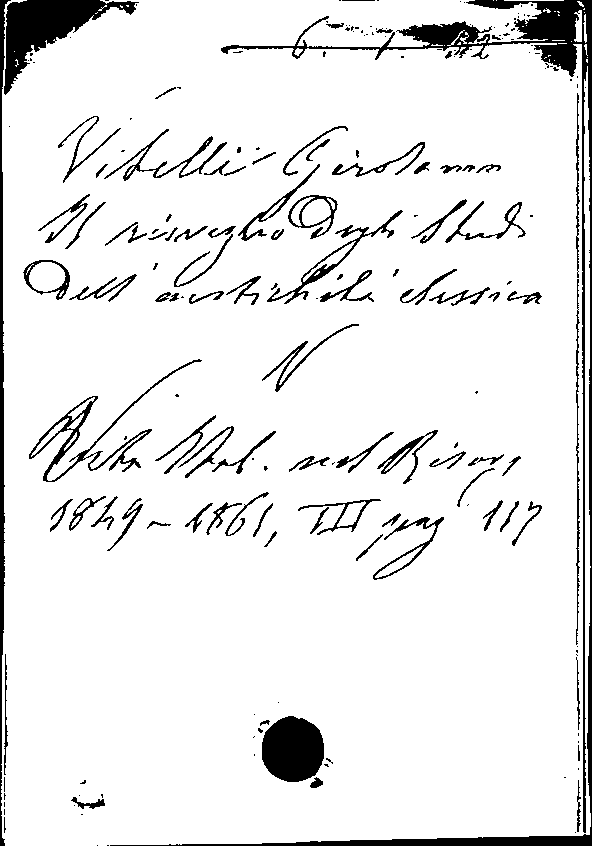 6. 1. 52
Vitelli Girolamo
Il risveglio degli Studi
dell' antichità classica
Vita Ital. nel Risorg
1849-1861, III pag 117